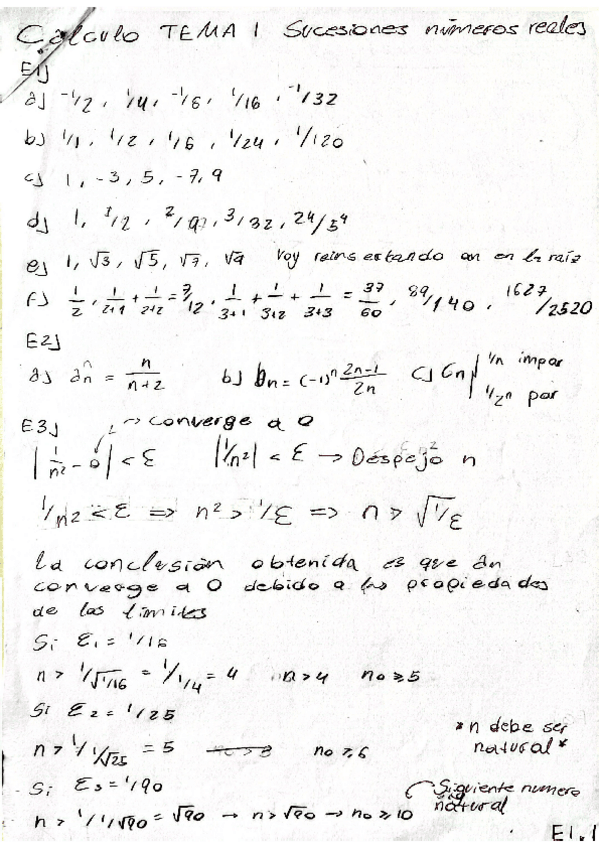 Cálculo TEMA 1 Sucesiones números reales
E1)
a) -1/2, 1/4, -1/6, 1/16, -1/32
b) 1/1, 1/2, 1/6, 1/24, 1/120
c) 1, -3, 5, -7, 9
d) 1, 1/2, 2/9, 3/32, 24/5⁴
e) 1, √3, √5, √7, √9 Voy en la raíz
f) 1/2, 1/2+1 + 1/2+2 = 7/12, 1/3+1 + 1/3+2 + 1/3+3 = 37/60, 89/140, 1627/2520
E2)
a) an = n/n+2 b) bn = (-1)ⁿ 2n-1/2n c) Cn | 1/n impar
1/2ⁿ par
E3) → converge a 0
|1/n² - 0| < ε |1/n²| < ε → Despejo n
1/n² < ε ⇒ n² > 1/ε ⇒ n > √1/ε
La conclusión obtenida es que an
converge a 0 debido a las propiedades
de los límites
Si ε₁ = 1/16
n > 1/√1/16 = 1/1/4 = 4 n > 4 n₀ ≥ 5
Si ε₂ = 1/25
n > 1/1/√25 = 5 n₀ ≥ 6
*n debe ser
natural*
Si ε₃ = 1/90
Siguiente numero
natural
n > 1/1/√90 = √90 → n > √90 → n₀ ≥ 10
E1.1